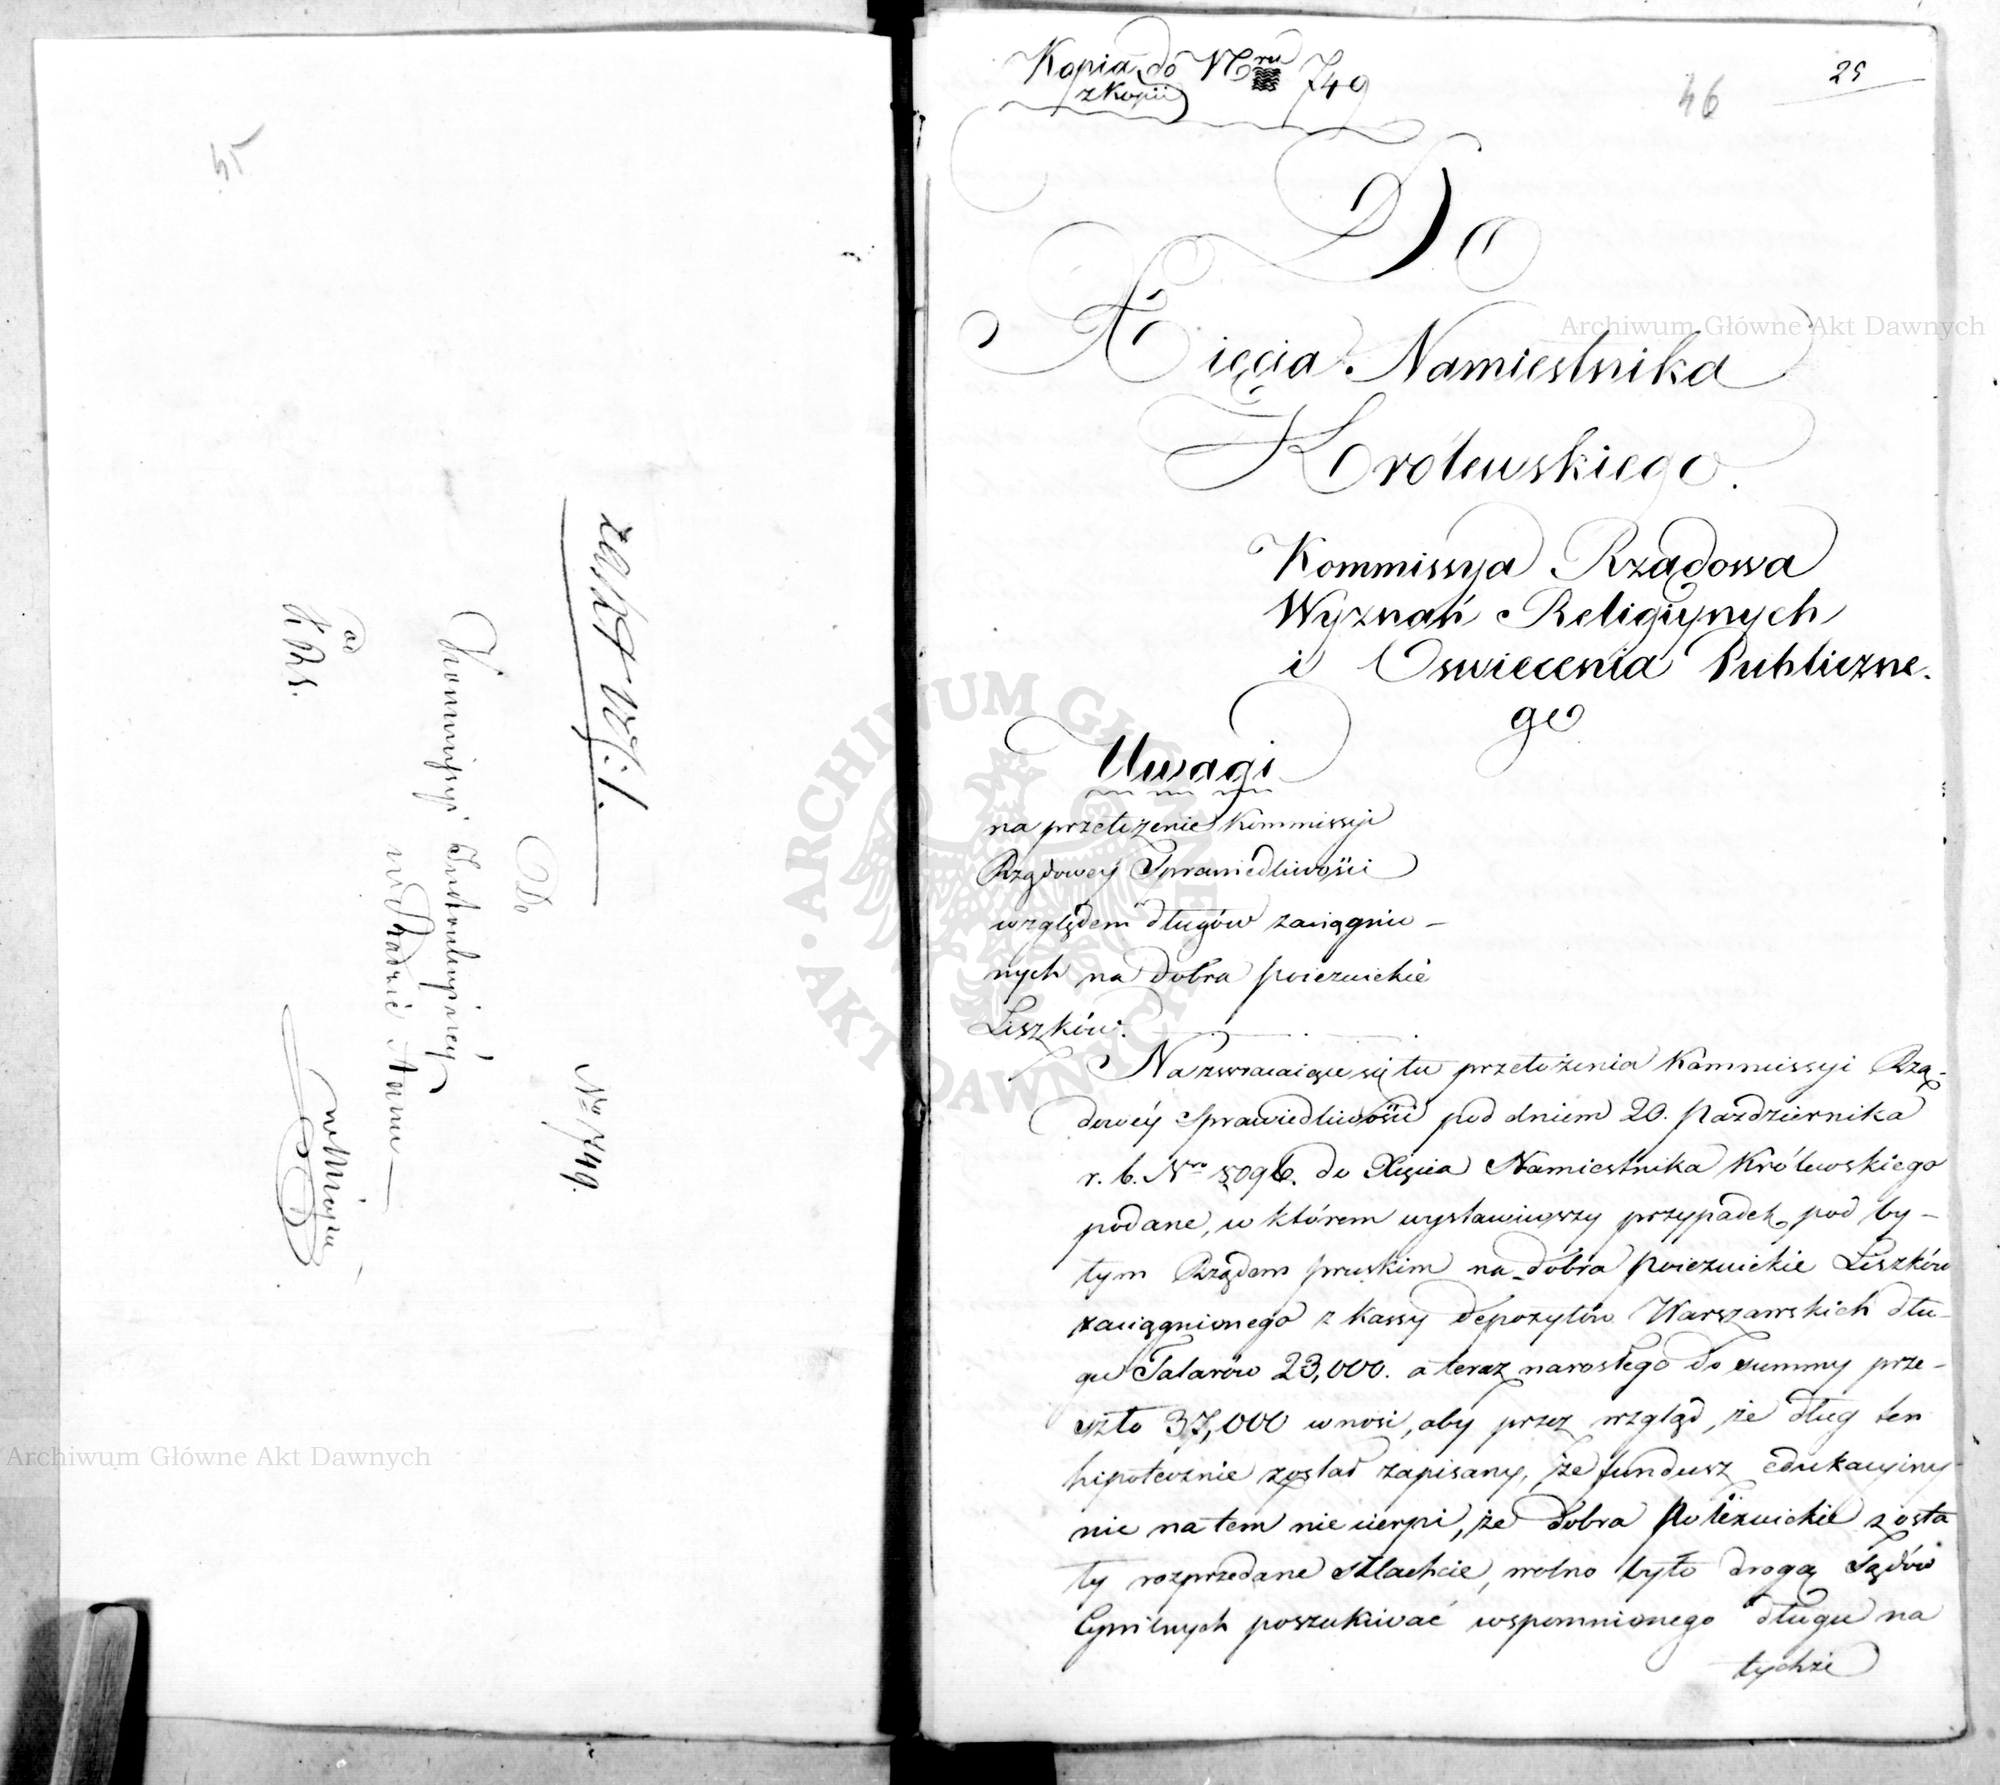 45
Do
Kommissyi Instrukcyjnéy
w Radzie Stanu
od
K R S.
w Mieyscu
No 749.
Kopia do Nru 749
z Kopii
46
25
Do
Xięcia Namiestnika
Królewskiego.
Kommissya Rządowa
Wyznań Religiynych
i Oswiecenia Publiczne-
go
Uwagi
na przełożenie Kommissyi
Rządowey Sprawiedliwości
względem długów zaciągnio-
nych na dobra poiezuickie
Liszków.
Na zwracaiące się tu przełożenia Kommissyi Rzą-
dowéy Sprawiedliwości pod dniem 20. Pazdziernika
r. b. Nro 5096. do Xięcia Namiestnika Królewskiego
podane, w którem wystawiwszy przypadek pod by-
łym Rządem pruskim na dobra poiezuickie Liszków
zaciągnionego z kassy depozytów Warszawskich dłu-
gu Talarów 23,000. a teraz narosłego do summy prze-
szło 37,000 wnosi, aby przez wzgląd, że dług ten
hipotecznie został zapisany, że fundusz edukacyiny
nic na tem nie cierpi, że dobra Poiezuickie zosta
ły rozprzedane szlachcie, wolno było drogą Sądów
Cywilnych poszukiwać wspomnionego długu na
tychże
Archiwum Główne Akt Dawnych
Archiwum Główne Akt Dawnych
ARCHIWUM GŁÓWNE AKT DAWNYCH